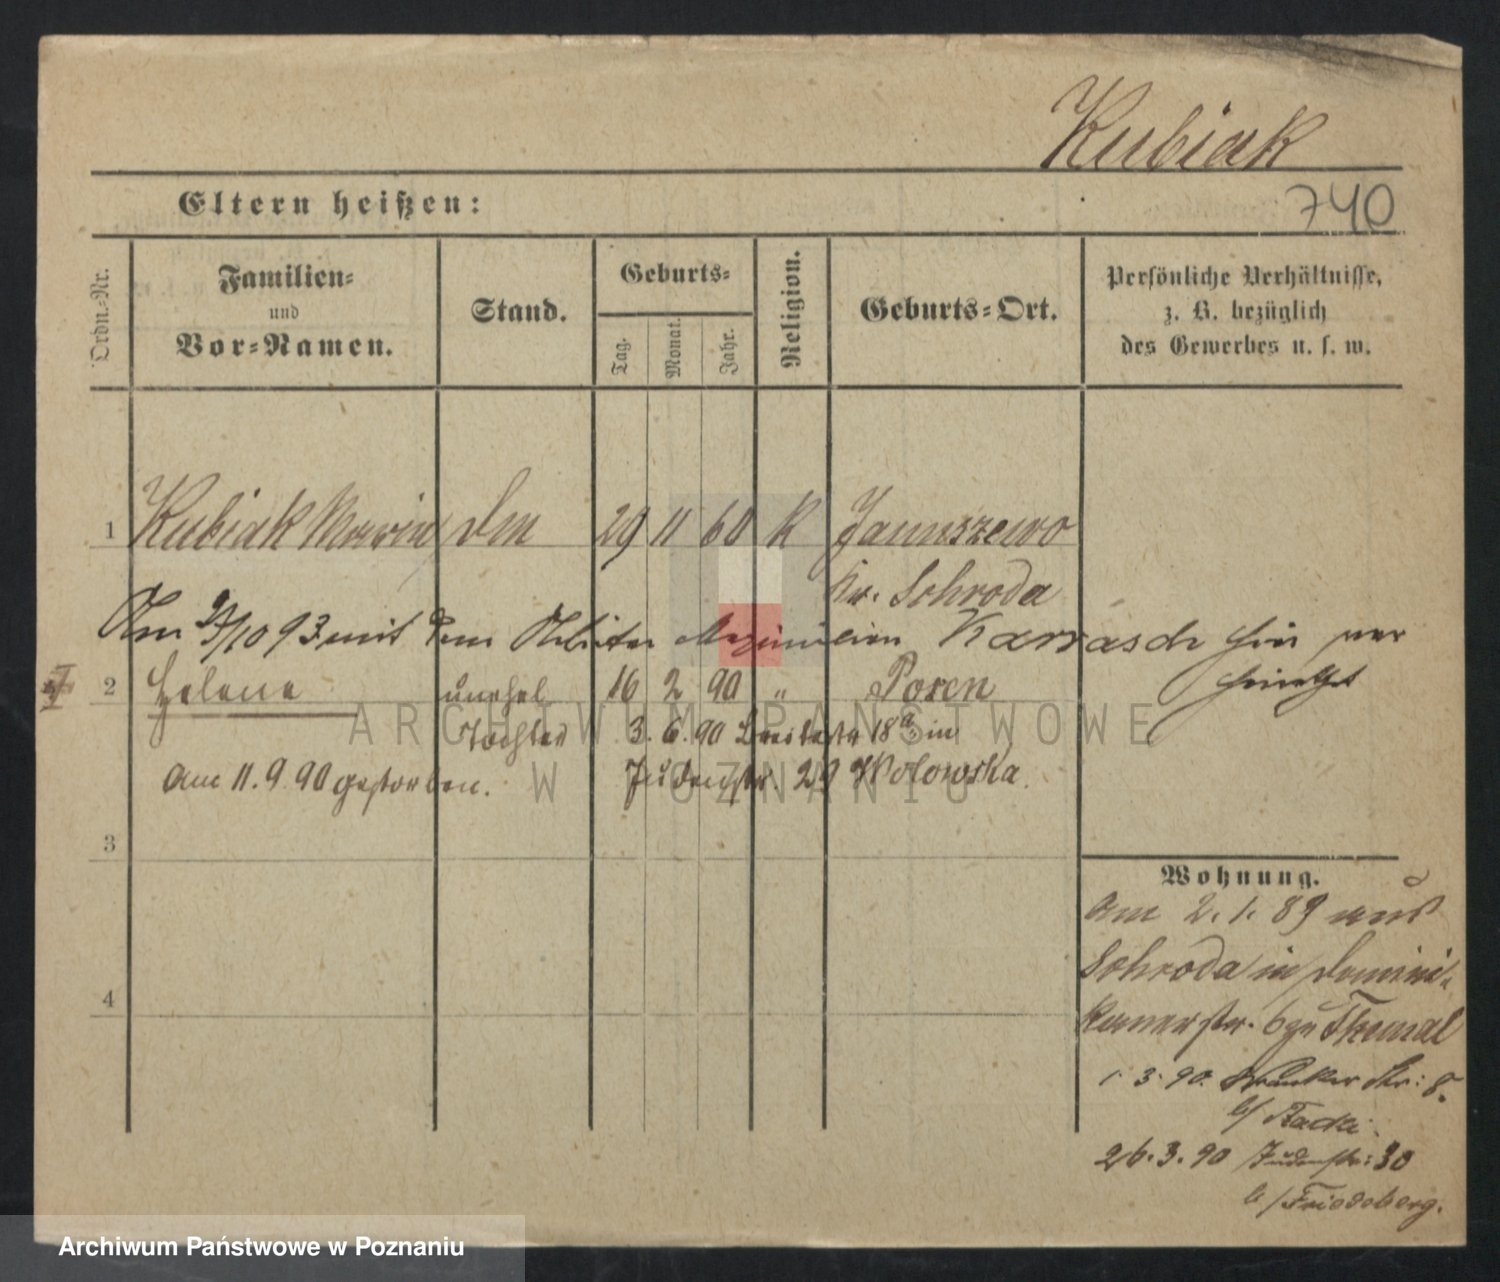 Kubiak
Eltern heißen:
740
Ordn.-Nr.
Familien-
und
Vor-Namen.
Stand.
Geburts-
Tag.
Monat.
Jahr.
Religion.
Geburts-Ort.
Persönliche Verhältnisse,
z. B. bezüglich
des Gewerbes u. s. w.
1 Kubiak Maria 29 11 60 K Januszewo
Kr. Schroda
Am /10 93 mit dem Arbeiter Karrasch hier ver
heirathet
2 Helene unehel 16 2 90 " Posen
Tochter 3. 6. 90 Breitestr 18a, in
Am 11. 9. 90 gestorben. Judenstr. 29 Wolowska.
3
4
Wohnung.
Am 2. 1. 89 aus
Schroda in Domini-
kanerstr. 6 zu
1. 3. 90. Str: 8.
b/
26. 3. 90 Judenstr: 30
b/ Friedeberg.
ARCHIWUM PAŃSTWOWE
W POZNANIU
Archiwum Państwowe w Poznaniu